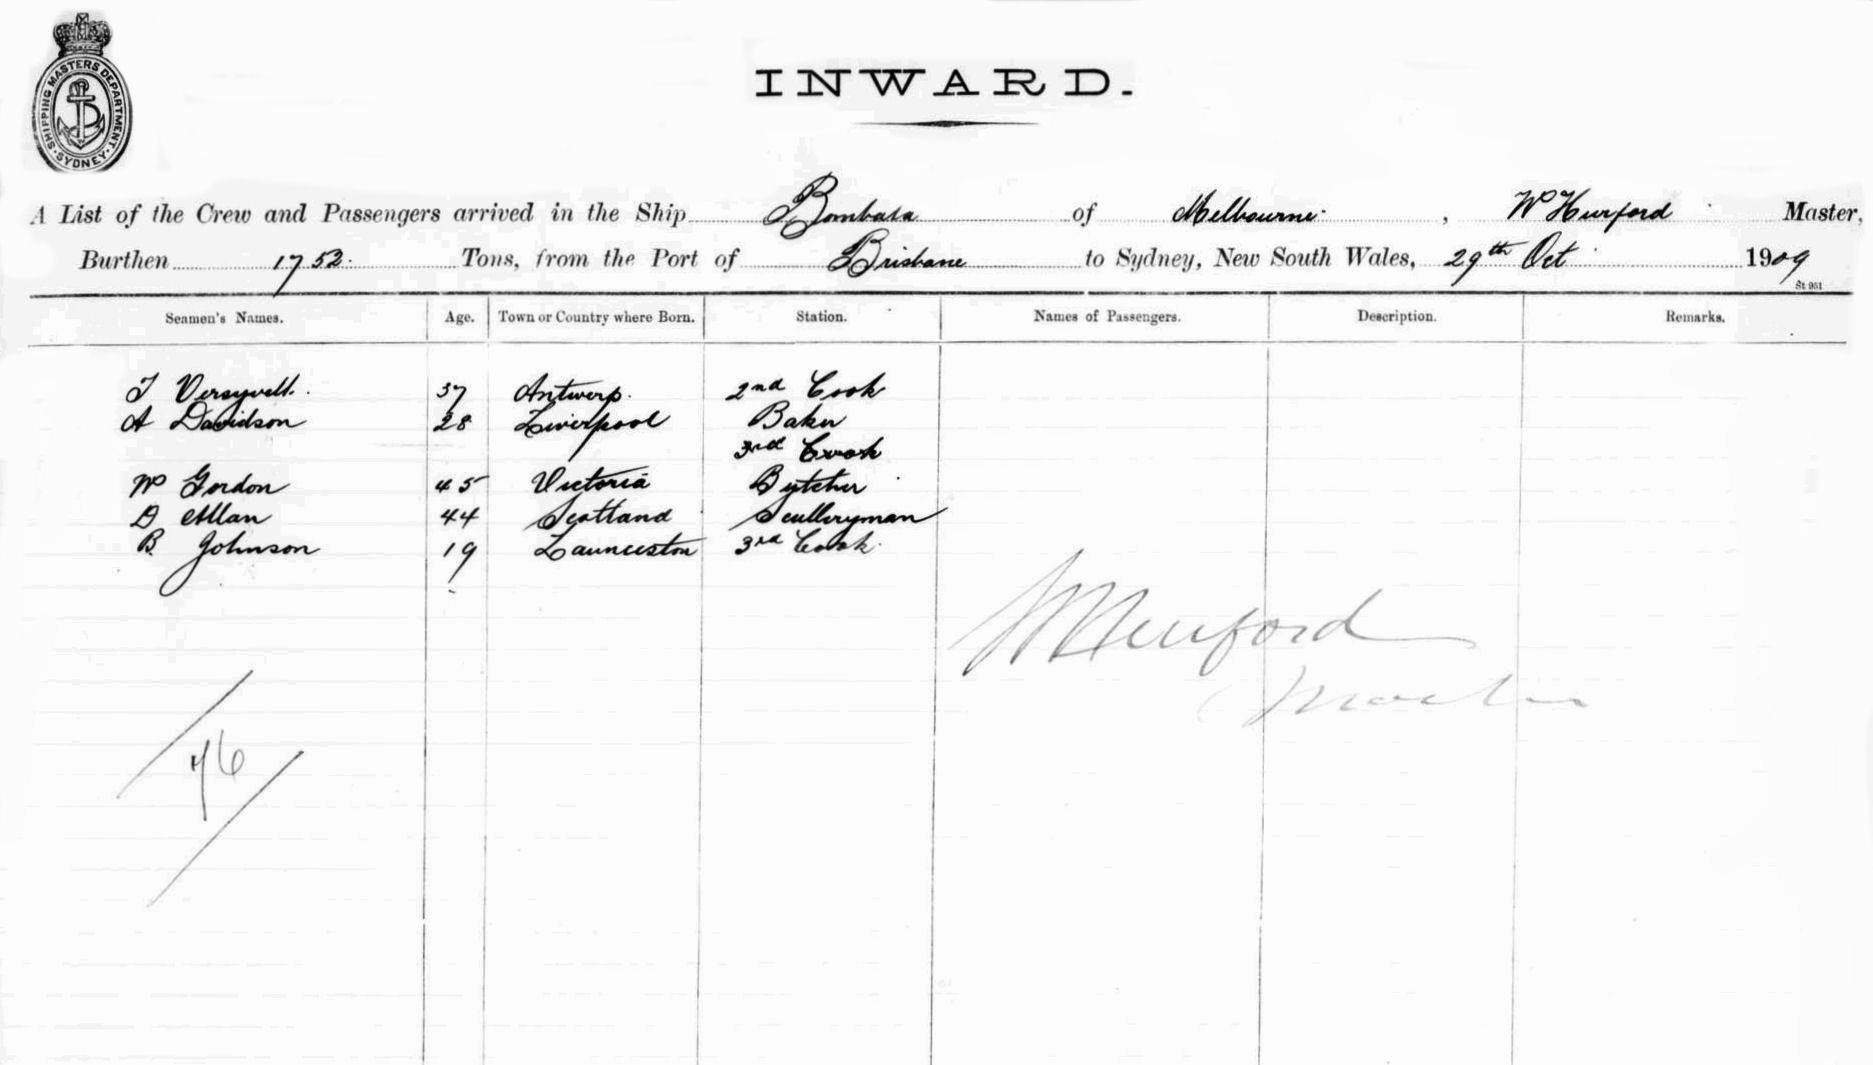 SHIPPING MASTERS DEPARTMENT. SYDNEY.
INWARD.
A List of the Crew and Passengers arrived in the Ship Bombala of Melbourne , W Hurford Master,
Burthen 1752 Tons, from the Port of Brisbane to Sydney, New South Wales, 29th Oct 1909
St 951
Seamen's Names. Age. Town or Country where Born. Station. Names of Passengers. Description. Remarks.
37 Antwerp. 2nd Cook
A Davidson 28 Liverpool Baker
3rd Cook
W Gordon 45 Victoria Butcher
D Allan 44 Scotland Sculleryman
B Johnson 19 Launceston 3rd Cook
W Hurford
Master
46